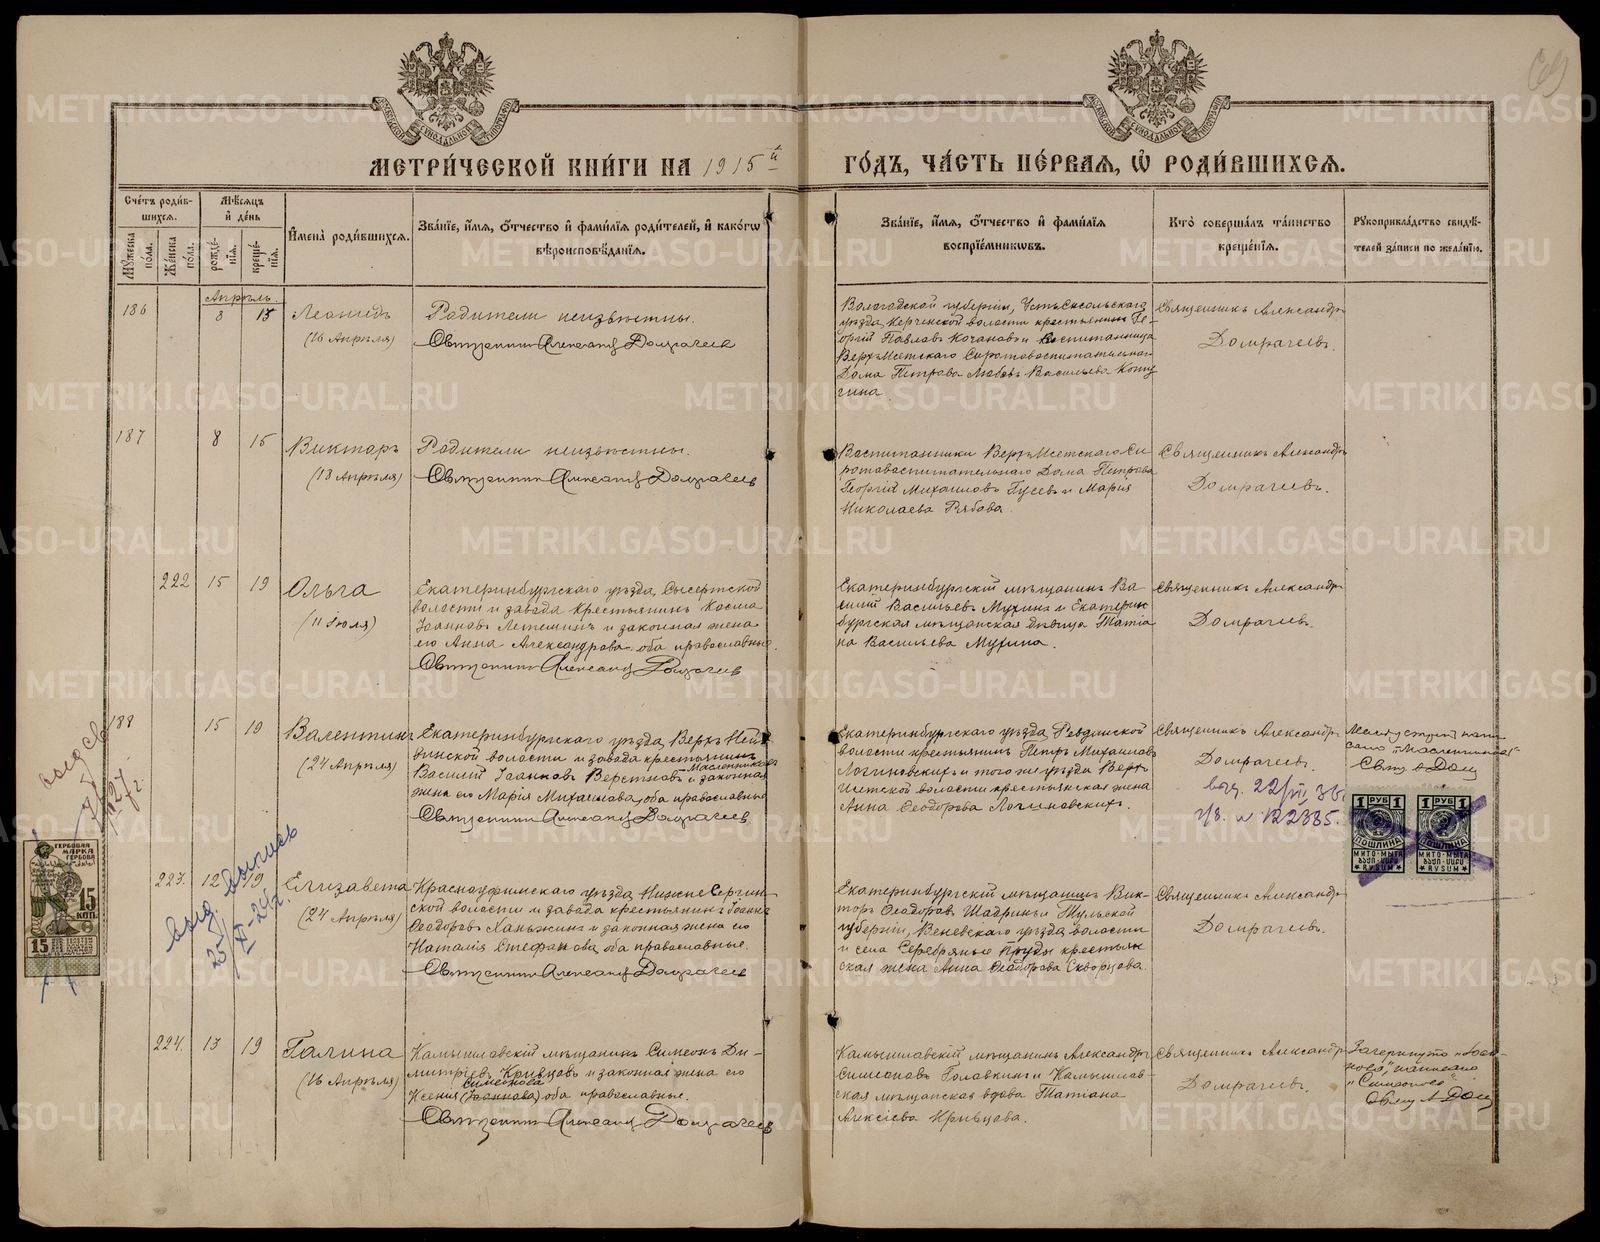 МЕТРИ́ЧЕСКОЙ КНИ́ГИ НА 1915й
ГО́ДЪ, ЧА́СТЬ ПЕ́РВАЯ, Ѡ РОДИ́ВШИХСЯ.
Сче́тъ роди́в-
шихся.
Му́жеска по́ла.
Же́нска по́ла.
Мѣ́сяцъ
и́ де́нь
рожде́-
нія.
креще́-
нія.
И҆мена̀ роди́вшихся.
Зва́ніе, и҆́мя, ѻ҆́тчество и҆ фами́лія роди́телей, и҆ како́гѡ
вѣроисповѣ́данія.
Зва́ніе, и҆́мя, ѻ҆́тчество и҆ фами́лія
воспрїе́мниковъ.
Кто̀ соверша́лъ та́инство
креще́нія.
Рꙋкоприкла́дство свидѣ́-
телей за́писи по жела́нію.
Апрѣль.
186
8
15
Леонидъ
(16 Апрѣля)
Родители неизвѣстны.
Священникъ Александръ Домрачевъ
Вологодской губерніи, Устьсысольскаго
уѣзда, Керчемской волости крестьянинъ Ге-
оргій Павловъ Кочановъ и воспитанница
Верхъ-Исетскаго Сиротовоспитательнаго
Дома Петрова Любовь Васильева
Священникъ Александръ
Домрачевъ.
187
8
15
Викторъ
(18 Апрѣля)
Родители неизвѣстны.
Священникъ Александръ Домрачевъ
Воспитанники Верхъ-Исетскаго Си-
ротовоспитательнаго Дома Петрова
Георгій Михаиловъ Гусевъ и Марія
Николаева Рябова.
Священникъ Александръ
Домрачевъ.
222
15
19
Ольга
(11 Іюля)
Екатеринбургскаго уѣзда, Сысертской
волости и завода крестьянинъ Косма
Іоанновъ Летеминъ и законная жена
его Анна Александрова, оба православные.
Священникъ Александръ Домрачевъ
Екатеринбургскій мѣщанинъ Ва-
силій Васильевъ Мухинъ и Екатерин-
бургская мѣщанская дѣвица Татіа-
на Васильева Мухина.
Священникъ Александръ
Домрачевъ.
188
15
19
Валентинъ
(24 Апрѣля)
Екатеринбургскаго уѣзда, Верхъ-Ней-
винской волости и завода крестьянинъ
Масленниковъ
Василій Іоанновъ и законная
жена его Марія Михаилова, оба православные
Священникъ Александръ Домрачевъ.
Екатеринбургскаго уѣзда, Ревдинской
волости крестьянинъ Петръ Михаиловъ
Логиновскихъ и того же уѣзда Верхъ-
Исетской волости крестьянская жена
Анна Ѳеодорова Логиновскихъ.
Священникъ Александръ
Домрачевъ.
Между строкъ напи-
сано „Масленниковъ"
выд. 22/VII 36
№ 122385.
1 РУБ 1
ПОШЛИНА
МИТО-МЫТА
RVSUM
1 РУБ 1
ПОШЛИНА
МИТО-МЫТА
RVSUM
ГЕРБОВАЯ
МАРКА
ГЕРБОВА
15
КОП.
15
выд. выпись
25/XI-24г.
223.
12
19
Елизавета
(24 Апрѣля)
Красноуфимскаго уѣзда Нижне-Сергин-
ской волости и завода крестьянинъ Іоаннъ
Ѳеодоровъ Ханьжинъ и законная жена его
Наталія Стефанова, оба православные.
Священникъ Александръ Домрачевъ
Екатеринбургскій мѣщанинъ Вик-
торъ Ѳеодоровъ Шадринъ и Тульской
губерніи, Веневскаго уѣзда, волости
и села Серебряные Пруды крестьян-
ская жена Анна Ѳеодорова Скворцова.
Священникъ Александръ
Домрачевъ.
224.
13
19
Галина
(16 Апрѣля)
Камышловскій мѣщанинъ Симеонъ Ди-
митріевъ Кривцовъ и законная жена его
Симеонова
Ксенія (Іоаннова) оба православные.
Священникъ Александръ Домрачевъ
Камышловскій мѣщанинъ Александръ
Симеоновъ Головкинъ и Камышлов-
ская мѣщанская вдова Татіана
Алексіева Кривцова.
Священникъ Александръ
Домрачевъ.
Зачеркнуто „Іоан-
нова", написано
„Симеонова"
METRIKI.GASO-URAL.RU